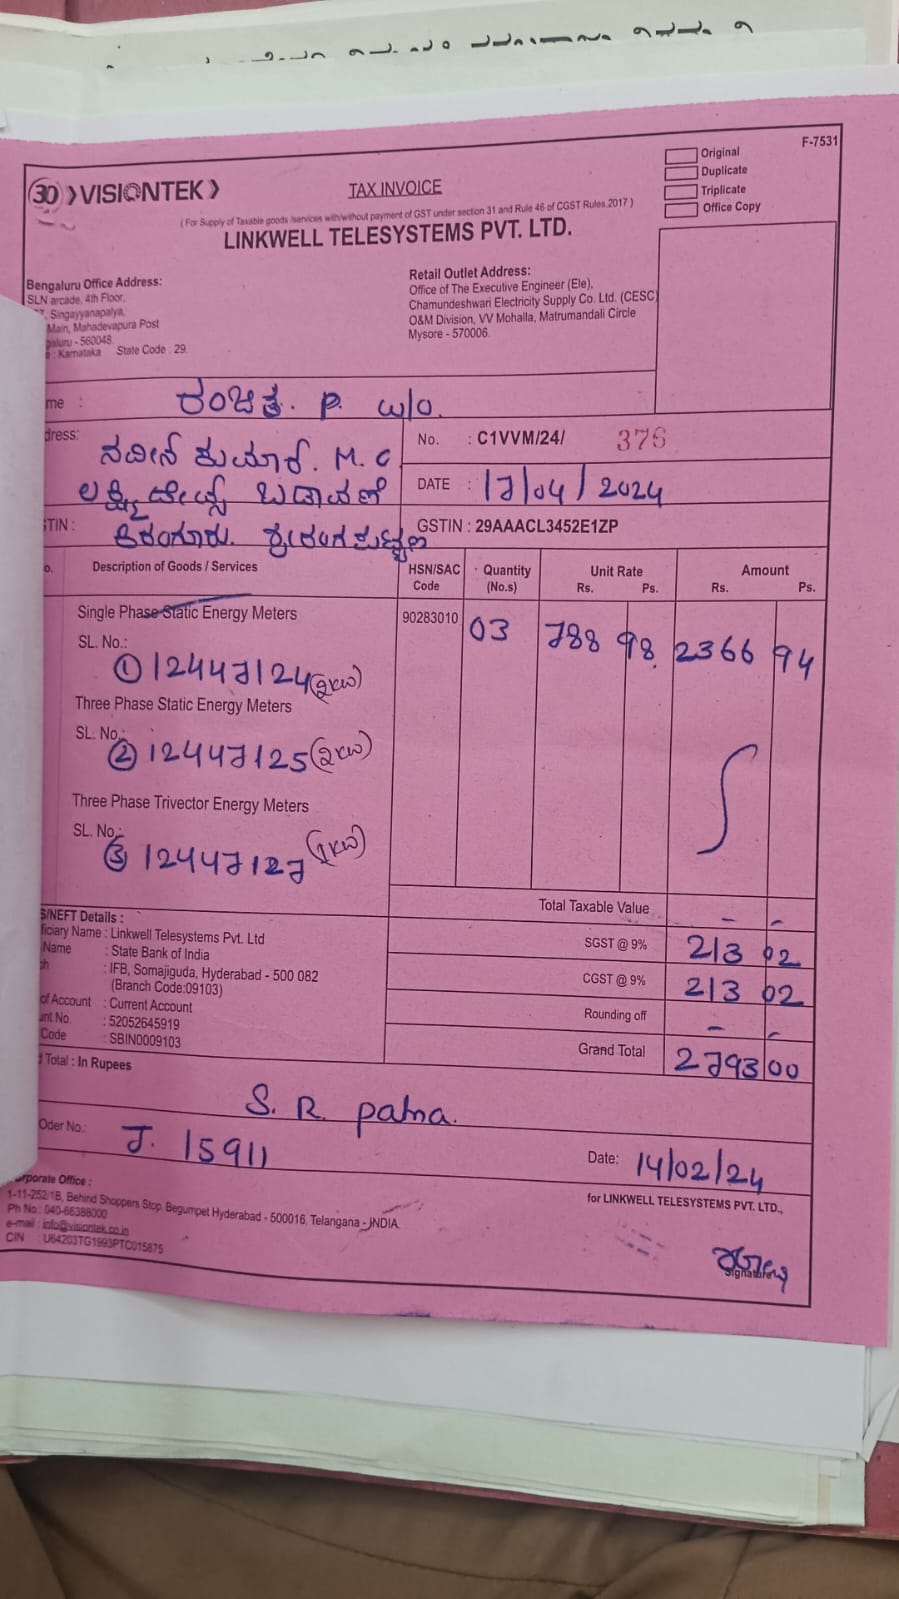 F-7531
Original
Duplicate
Triplicate
Office Copy
30 VISIONTEK
TAX INVOICE
( For Supply of Taxable goods /services with/without payment of GST under section 31 and Rule 46 of CGST Rules,2017 )
LINKWELL TELESYSTEMS PVT. LTD.
Bengaluru Office Address:
SLN arcade, 4th Floor,
Singayyanapalya,
Main, Mahadevapura Post
aluru - 560048.
: Karnataka State Code : 29.
Retail Outlet Address:
Office of The Executive Engineer (Ele),
Chamundeshwari Electricity Supply Co. Ltd. (CESC)
O&M Division, VV Mohalla, Matrumandali Circle
Mysore - 570006.
me : ರಂಜಿತ. P. W/O.
dress: ನವೀನ್ ಕುಮಾರ್. M. C
No. : C1VVM/24/ 376
DATE : 17/04/2024
STIN :
GSTIN : 29AAACL3452E1ZP
o. Description of Goods / Services HSN/SAC Code Quantity (No.s) Unit Rate Rs. Ps. Amount Rs. Ps.
Single Phase Static Energy Meters 90283010 03 788 98. 2366 94
SL. No.:
① 12447124 (2KW)
Three Phase Static Energy Meters
SL. No.:
② 12447125 (2KW)
Three Phase Trivector Energy Meters
SL. No.:
③ 12447127 (1KW)
Total Taxable Value - -
S/NEFT Details :
ficiary Name : Linkwell Telesystems Pvt. Ltd
Name : State Bank of India
: IFB, Somajiguda, Hyderabad - 500 082
(Branch Code:09103)
of Account : Current Account
unt No. : 52052645919
Code : SBIN0009103
SGST @ 9% 213 02
CGST @ 9% 213 02
Rounding off - -
Grand Total 2793 00
Total : In Rupees
S. R. patna.
Oder No.: J. 15911
Date: 14/02/24
for LINKWELL TELESYSTEMS PVT. LTD.,
Signature
rporate Office :
1-11-252/1B, Behind Shoppers Stop, Begumpet Hyderabad - 500016, Telangana - INDIA.
Ph No.: 040-66388000
e-mail : info@visiontek.co.in
CIN : U64203TG1993PTC015875